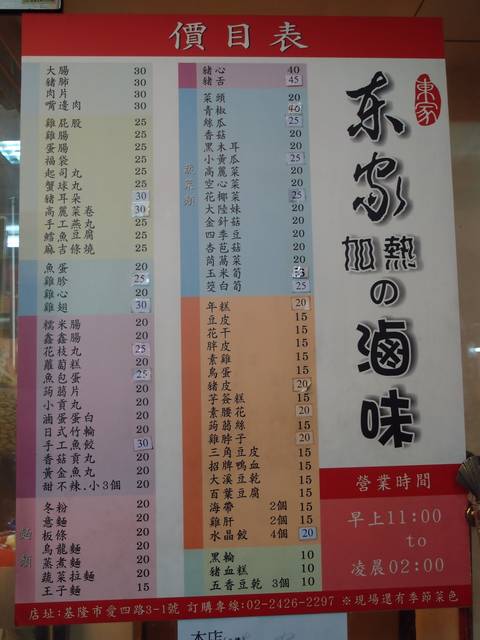 價目表
大腸 30
豬肺 30
肉片 30
嘴邊肉 30
雞屁股 25
雞腸 25
蛋腸 25
福袋 25
起司丸 25
蟹球丸 25
豬耳朵 30
高麗菜卷 30
手工燕丸 25
鱈魚豆腐 25
麻吉條燒 25
魚蛋 20
雞胗 25
雞心 20
雞翅 30
糯米腸 20
鑫鑫腸 20
花枝丸 25
蘿蔔糕 20
魚包蛋 25
蒟蒻片 20
小貢丸 20
滷蛋蛋白 20
日式竹輪 20
手工魚餃 30
香菇貢丸 20
黃金魚丸 20
甜不辣.小3個 20
麵類
冬粉 20
意麵 20
板條 20
烏龍麵 20
蒸煮麵 20
蔬菜拉麵 20
王子麵 15
豬心 40
豬舌 45
菜頭 20
青椒
絲瓜 25
香菇 20
黑木耳 20
小黃瓜 25
高麗菜 20
空心菜 20
花椰菜 25
大陸妹 20
金針菇 20
四季豆 20
杏芭菇 20
茼萬菜 20
玉米筍
茭白筍 25
年糕 20
豆皮 15
花干 15
胖皮 15
素雞 15
鳥蛋 15
豬皮 20
芋簽糕 15
素腰花 20
蒟蒻絲 15
雞脖子 20
三角豆皮 15
招牌鴨血 15
大溪豆乾 15
百葉豆腐 15
海帶 2個 15
雞肝 2個 15
水晶餃 4個 20
黑輪 10
豬血糕 10
五香豆乾 3個 10
東家
东家
加熱の
滷味
營業時間
早上11:00
to
凌晨02:00
店址:基隆市愛四路3-1號 訂購專線:02-2426-2297 ※現場還有季節菜色
本店